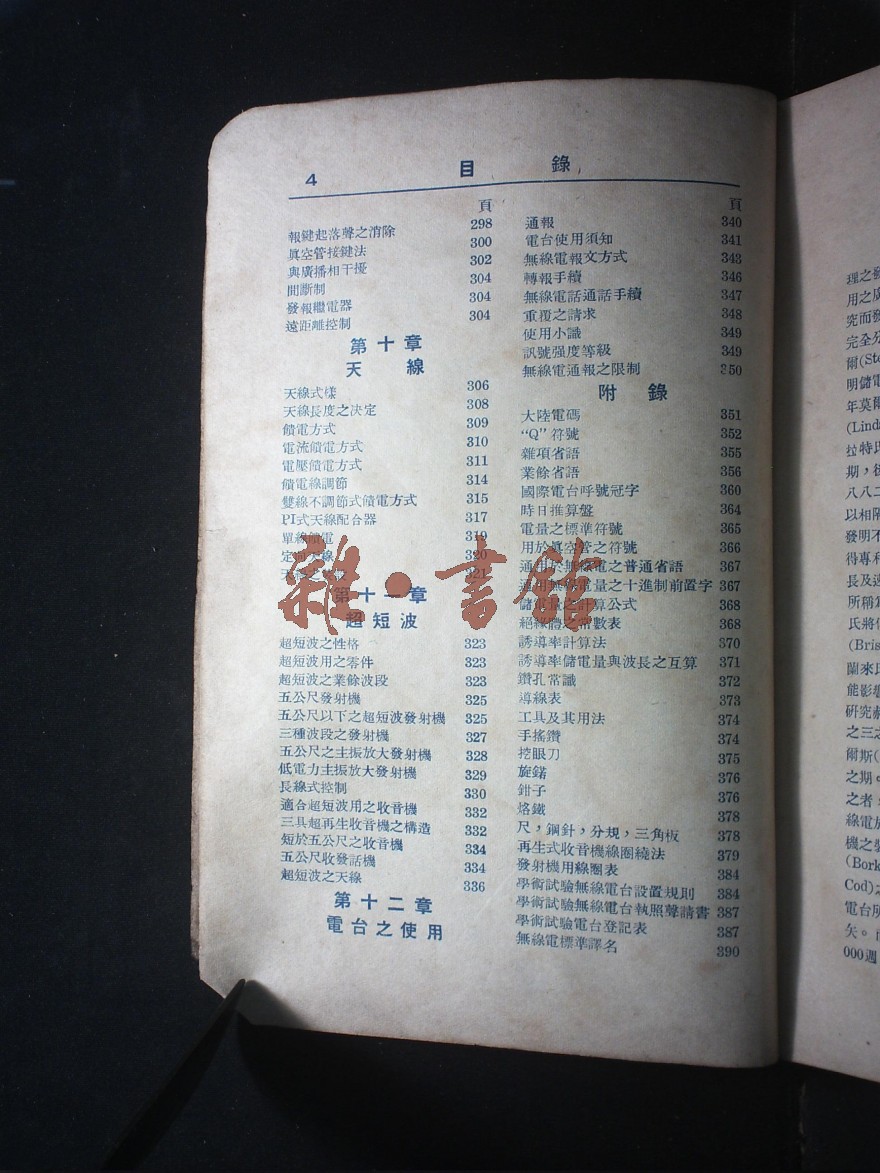 4
目 錄
頁
報鍵起落聲之消除 298
眞空管接鍵法 300
與廣播相干擾 302
間斷制 304
發報繼電器 304
遠距離控制 304
第十章
天 線
天線式樣 306
天線長度之决定 308
饋電方式 309
電流饋電方式 310
電壓饋電方式 311
饋電線調節 314
雙線不調節式饋電方式 315
PI式天線配合器 317
單線饋電 319
定向天線 320
321
第十一章
超短波
超短波之性格 323
超短波用之零件 323
超短波之業餘波段 323
五公尺發射機 325
五公尺以下之超短波發射機 325
三種波段之發射機 327
五公尺之主振放大發射機 328
低電力主振放大發射機 329
長線式控制 330
適合超短波用之收音機 332
三具超再生收音機之構造 332
短於五公尺之收音機 334
五公尺收發話機 334
超短波之天線 336
第十二章
電台之使用
頁
通報 340
電台使用須知 341
無線電報文方式 343
轉報手續 346
無線電話通話手續 347
重覆之請求 348
使用小識 349
訊號强度等級 349
無線電通報之限制 350
附 錄
大陸電碼 351
“Q”符號 352
雜項省語 355
業餘省語 356
國際電台呼號冠字 360
時日推算盤 364
電量之標準符號 365
用於眞空管之符號 366
通用於無線電之普通省語 367
通用無線電量之十進制前置字 367
儲電量之計算公式 368
絕緣體之常數表 368
誘導率計算法 370
誘導率儲電量與波長之互算 371
鑽孔常識 372
導線表 373
工具及其用法 374
手搖鑽 374
挖眼刀 375
旋鍩 376
鉗子 376
烙鐵 378
尺，鋼針，分規，三角板 378
再生式收音機線圈繞法 379
發射機用線圈表 384
學術試驗無線電台設置規則 384
學術試驗無線電台執照聲請書 387
學術試驗電台登記表 387
無線電標準譯名 390
雜·書館
理之發
用之廣
究而發
完全分
爾(Ste
明儲電
年莫爾
(Linda
拉特氏
期，後
八八二
以相隔
發明不
得專利
長及遠
所稱當
氏將信
(Bris
蘭來氏
能影響
研究赫
之三之
爾斯(
之期。
之者，
線電於
機之裝
(Bork
Cod)之
電台所
矣。
000週